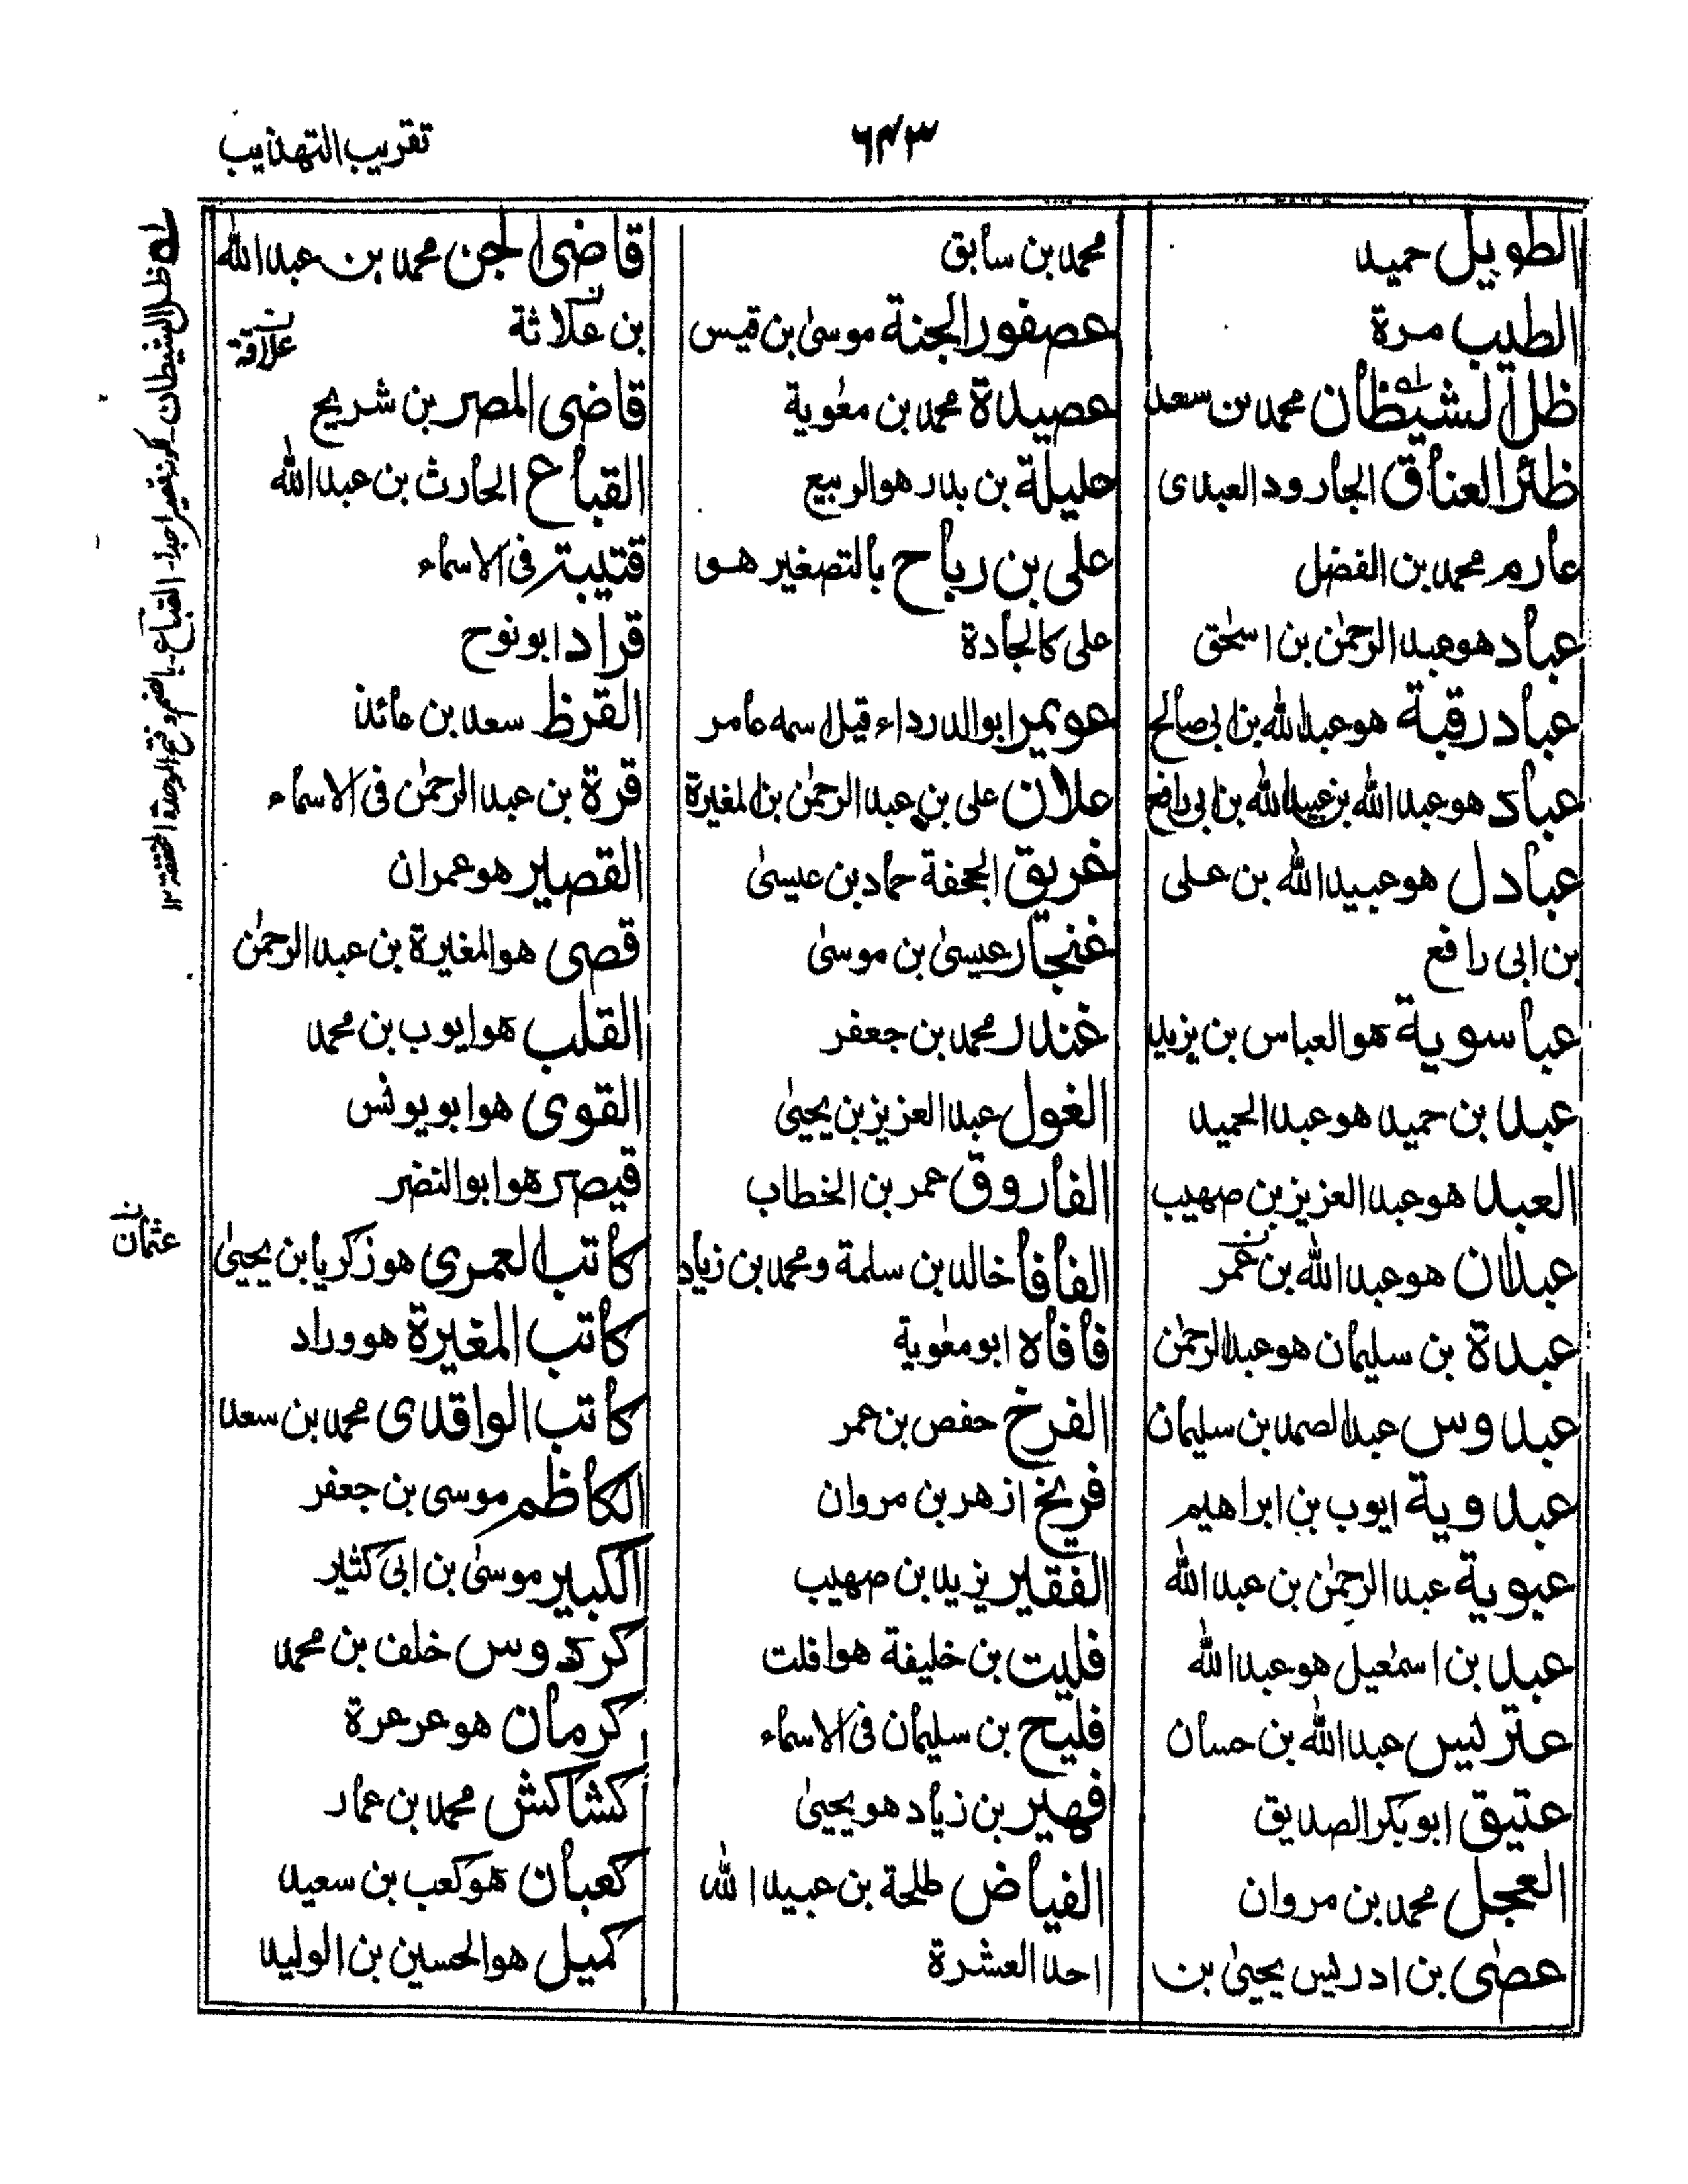 تقريب التهذيب
٦٤٣
الطويل حميد
الطيب مرة
ظل الشيطان محمد بن سعد
ظئر العناق الجارود العبدى
عارم محمد بن الفضل
عباد هو عبد الرحمٰن بن اسحٰق
عباد رقبة هو عبد الله بن ابى صالح
عباد هو عبد الله بن عبيد الله بن ابى رافع
عبادل هو عبيد الله بن على
بن ابى رافع
عباسوية هو العباس بن يزيد
عبد بن حميد هو عبد الحميد
العبد هو عبد العزيز بن صهيب
عبدان هو عبد الله بن عمر
عبدة بن سليمان هو عبد الرحمٰن
عبدوس عبد الصمد بن سليمان
عبدوية ايوب بن ابراهيم
عبوية عبد الرحمٰن بن عبد الله
عبد بن اسمٰعيل هو عبد الله
عتريس عبد الله بن حسان
عتيق ابو بكر الصديق
العجل محمد بن مروان
عصٰى بن ادريس يحيىٰ بن
محمد بن سابق
عصفور الجنة موسىٰ بن قيس
عصيدة محمد بن معٰوية
عليلة بن بدر هو الربيع
على بن رباح بالتصغير هو
على كالجادة
عويمر ابو الدرداء قيل اسمه عامر
علان على بن عبد الرحمٰن بن المغيرة
غريق الجحفة حماد بن عيسىٰ
غنجار عيسىٰ بن موسىٰ
غندر محمد بن جعفر
الغول عبد العزيز بن يحيىٰ
الفاروق عمر بن الخطاب
الفافأ خالد بن سلمة ومحمد بن زياد
فافاه ابو معٰوية
الفرخ حفص بن عمر
فريخ ازهر بن مروان
الفقير يزيد بن صهيب
فليت بن خليفة هو افلت
فليح بن سليمان فى الاسماء
فهير بن زياد هو يحيىٰ
الفياض طلحة بن عبيد الله
احد العشرة
قاضى الجن محمد بن عبد الله
بن علاثة
قاضى المصر بن شريح
القباع الحارث بن عبد الله
قتيبة فى الاسماء
قراد ابو نوح
القرظ سعد بن عائذ
قرة بن عبد الرحمٰن فى الاسماء
القصير هو عمران
قصى هو المغيرة بن عبد الرحمٰن
القلب هو ايوب بن محمد
القوى هو ابو يونس
قيصر هو ابو النضر
كاتب العمرى هو زكريا بن يحيىٰ
كاتب المغيرة هو وراد
كاتب الواقدى محمد بن سعد
الكاظم موسى بن جعفر
الكبير موسىٰ بن ابى كثير
كردوس خلف بن محمد
كرمان هو عرعرة
كشاكش محمد بن عمار
كعبان هو كعب بن سعيد
كميل هو الحسين بن الوليد
علاقة
ظل الشيطان۔ لكونه قصيرا جدا۔ القباع۔ بالضم وفتح الوحدة المخففة ١٢
عثمان